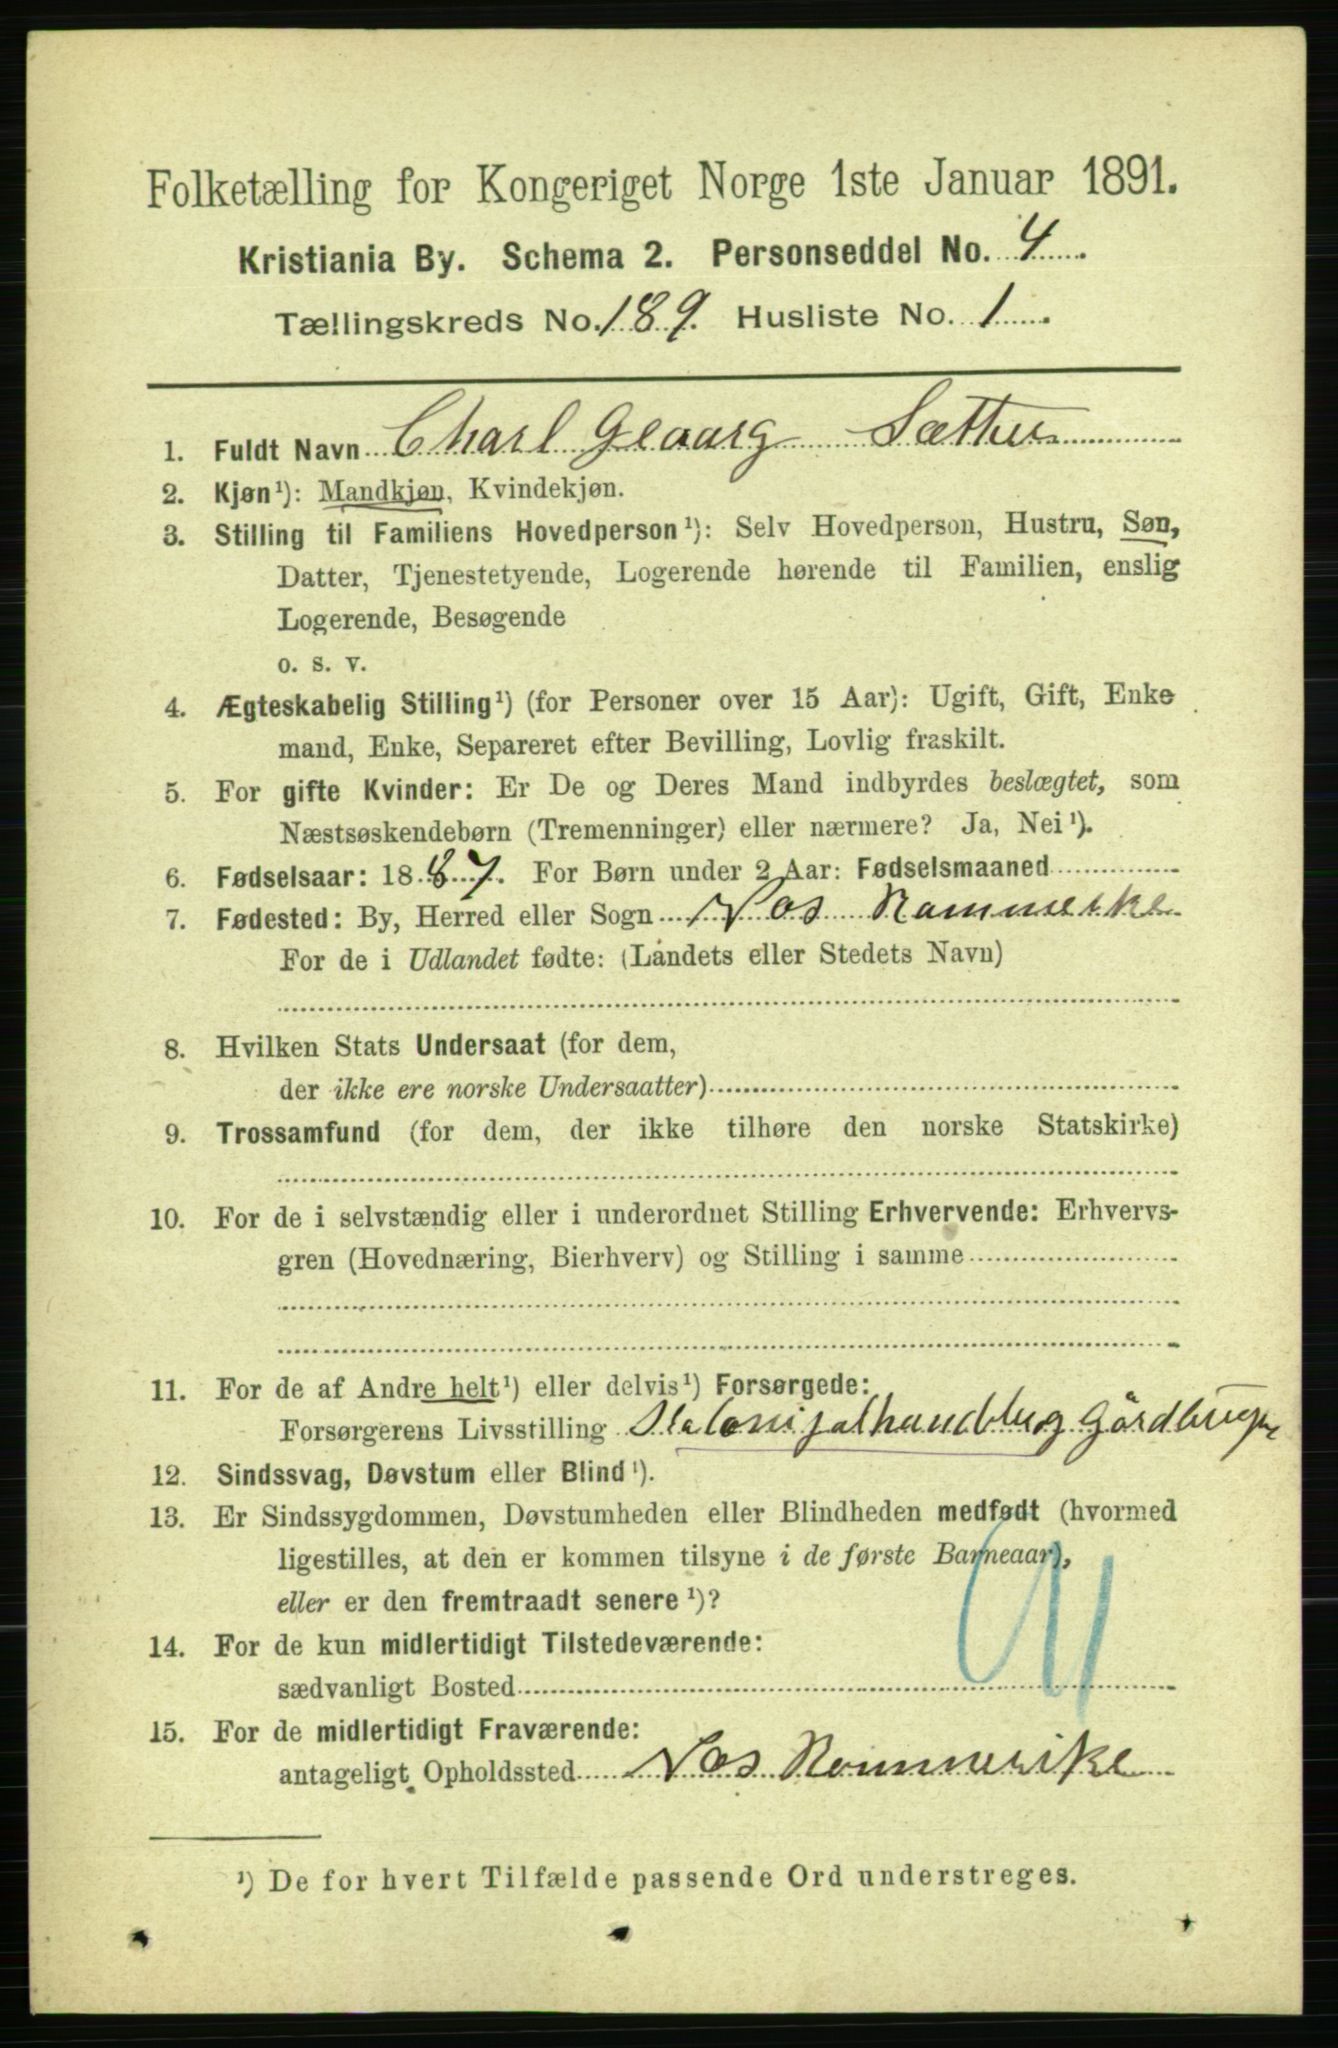 Folketælling for Kongeriget Norge 1ste Januar 1891.
Kristiania By. Schema 2. Personseddel No. 4
Tællingskreds No. 189. Husliste No. 1
1. Fuldt Navn Charl Geaarg Sæther
2. Kjøn¹): Mandkjøn, Kvindekjøn.
3. Stilling til Familiens Hovedperson¹): Selv Hovedperson, Hustru, Søn,
Datter, Tjenestetyende, Logerende hørende til Familien, enslig
Logerende, Besøgende
o. s. v.
4. Ægteskabelig Stilling¹) (for Personer over 15 Aar): Ugift, Gift, Enke
mand, Enke, Separeret efter Bevilling, Lovlig fraskilt.
5. For gifte Kvinder: Er De og Deres Mand indbyrdes beslægtet, som
Næstsøskendebørn (Tremenninger) eller nærmere? Ja, Nei¹).
6. Fødselsaar: 1887. For Børn under 2 Aar: Fødselsmaaned
7. Fødested: By, Herred eller Sogn Næs Rommerike
For de i Udlandet fødte: (Landets eller Stedets Navn)
8. Hvilken Stats Undersaat (for dem,
der ikke ere norske Undersaatter)
9. Trossamfund (for dem, der ikke tilhøre den norske Statskirke)
10. For de i selvstændig eller i underordnet Stilling Erhvervende: Erhvervs-
gren (Hovednæring, Bierhverv) og Stilling i samme
11. For de af Andre helt¹) eller delvis¹) Forsørgede:
Forsørgerens Livsstilling
12. Sindssvag, Døvstum eller Blind¹).
13. Er Sindssygdommen, Døvstumheden eller Blindheden medfødt (hvormed
ligestilles, at den er kommen tilsyne i de første Barneaar),
eller er den fremtraadt senere¹)?
14. For de kun midlertidigt Tilstedeværende:
sædvanligt Bosted
15. For de midlertidigt Fraværende:
antageligt Opholdssted Næs Rommerike
¹) De for hvert Tilfælde passende Ord understreges.